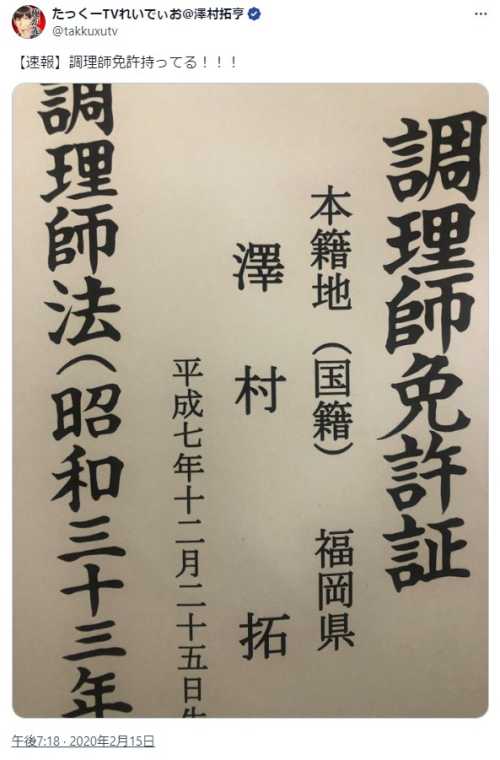 たっくーTVれいでぃお@澤村拓亨
@takkuxutv
【速報】調理師免許持ってる！！！
調理師免許証
本籍地（国籍） 福岡県
澤村 拓
平成七年十二月二十五日生
調理師法（昭和三十三年
午後7:18 · 2020年2月15日